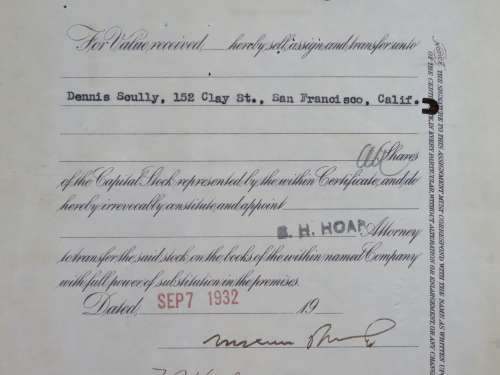 For Value received, hereby sell, assign and transfer unto
Dennis Scully, 152 Clay St., San Francisco, Calif.
all Shares
of the Capital Stock represented by the within Certificate, and do
hereby irrevocably constitute and appoint
E. H. HOAR Attorney
to transfer the said stock on the books of the within named Company
with full power of substitution in the premises.
Dated, SEP 7 1932 19
NOTICE THE SIGNATURE TO THIS ASSIGNMENT MUST CORRESPOND WITH THE NAME AS WRITTEN UPON
OF THE CERTIFICATE, IN EVERY PARTICULAR, WITHOUT ALTERATION OR ENLARGEMENT OR ANY CHANGE